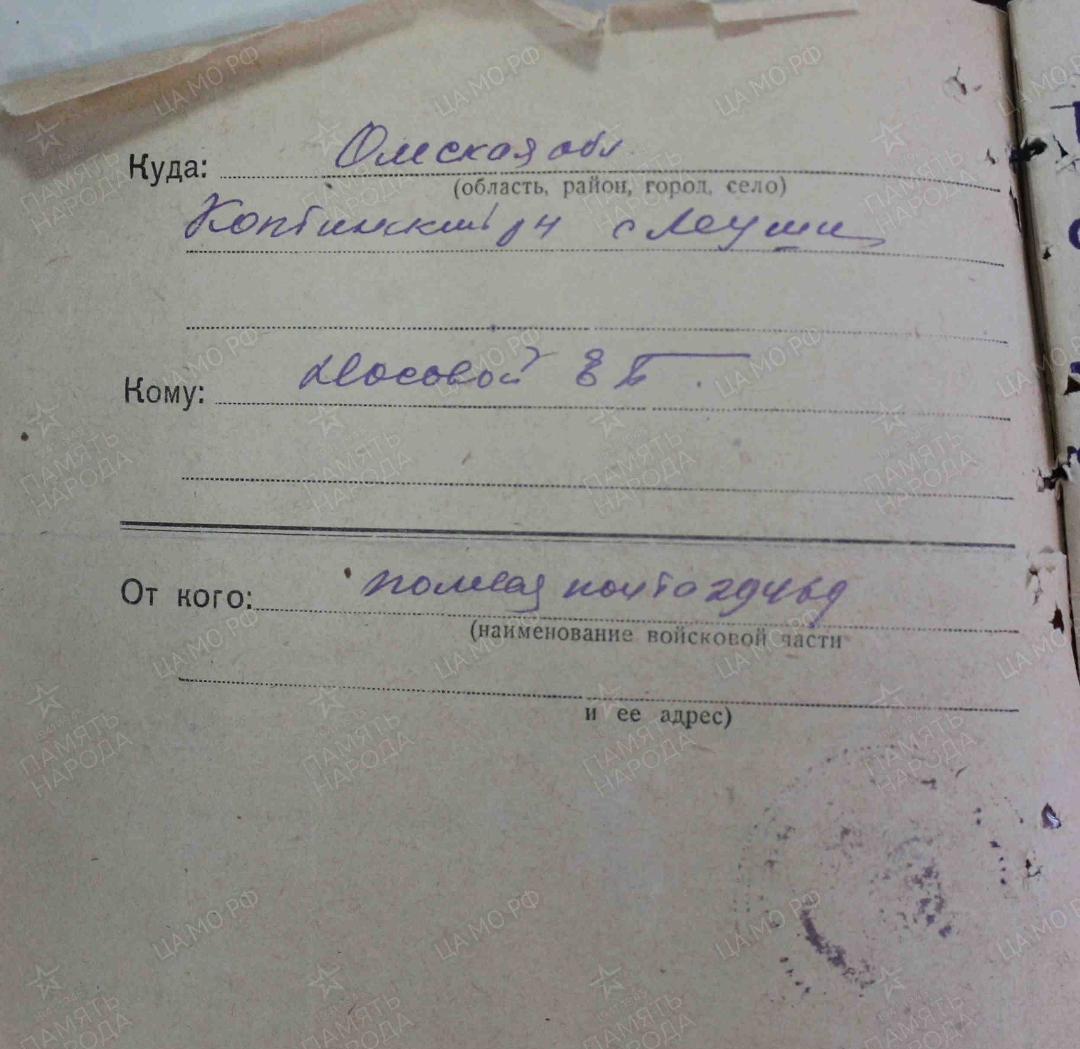 Куда: Омская обл
(область, район, город, село)
Коптинский рн с Леуши
Кому: Носовой Е Т.
От кого: полевая почта 29469
(наименование войсковой части
и ее адрес)
ЦА МО РФ
ПАМЯТЬ НАРОДА